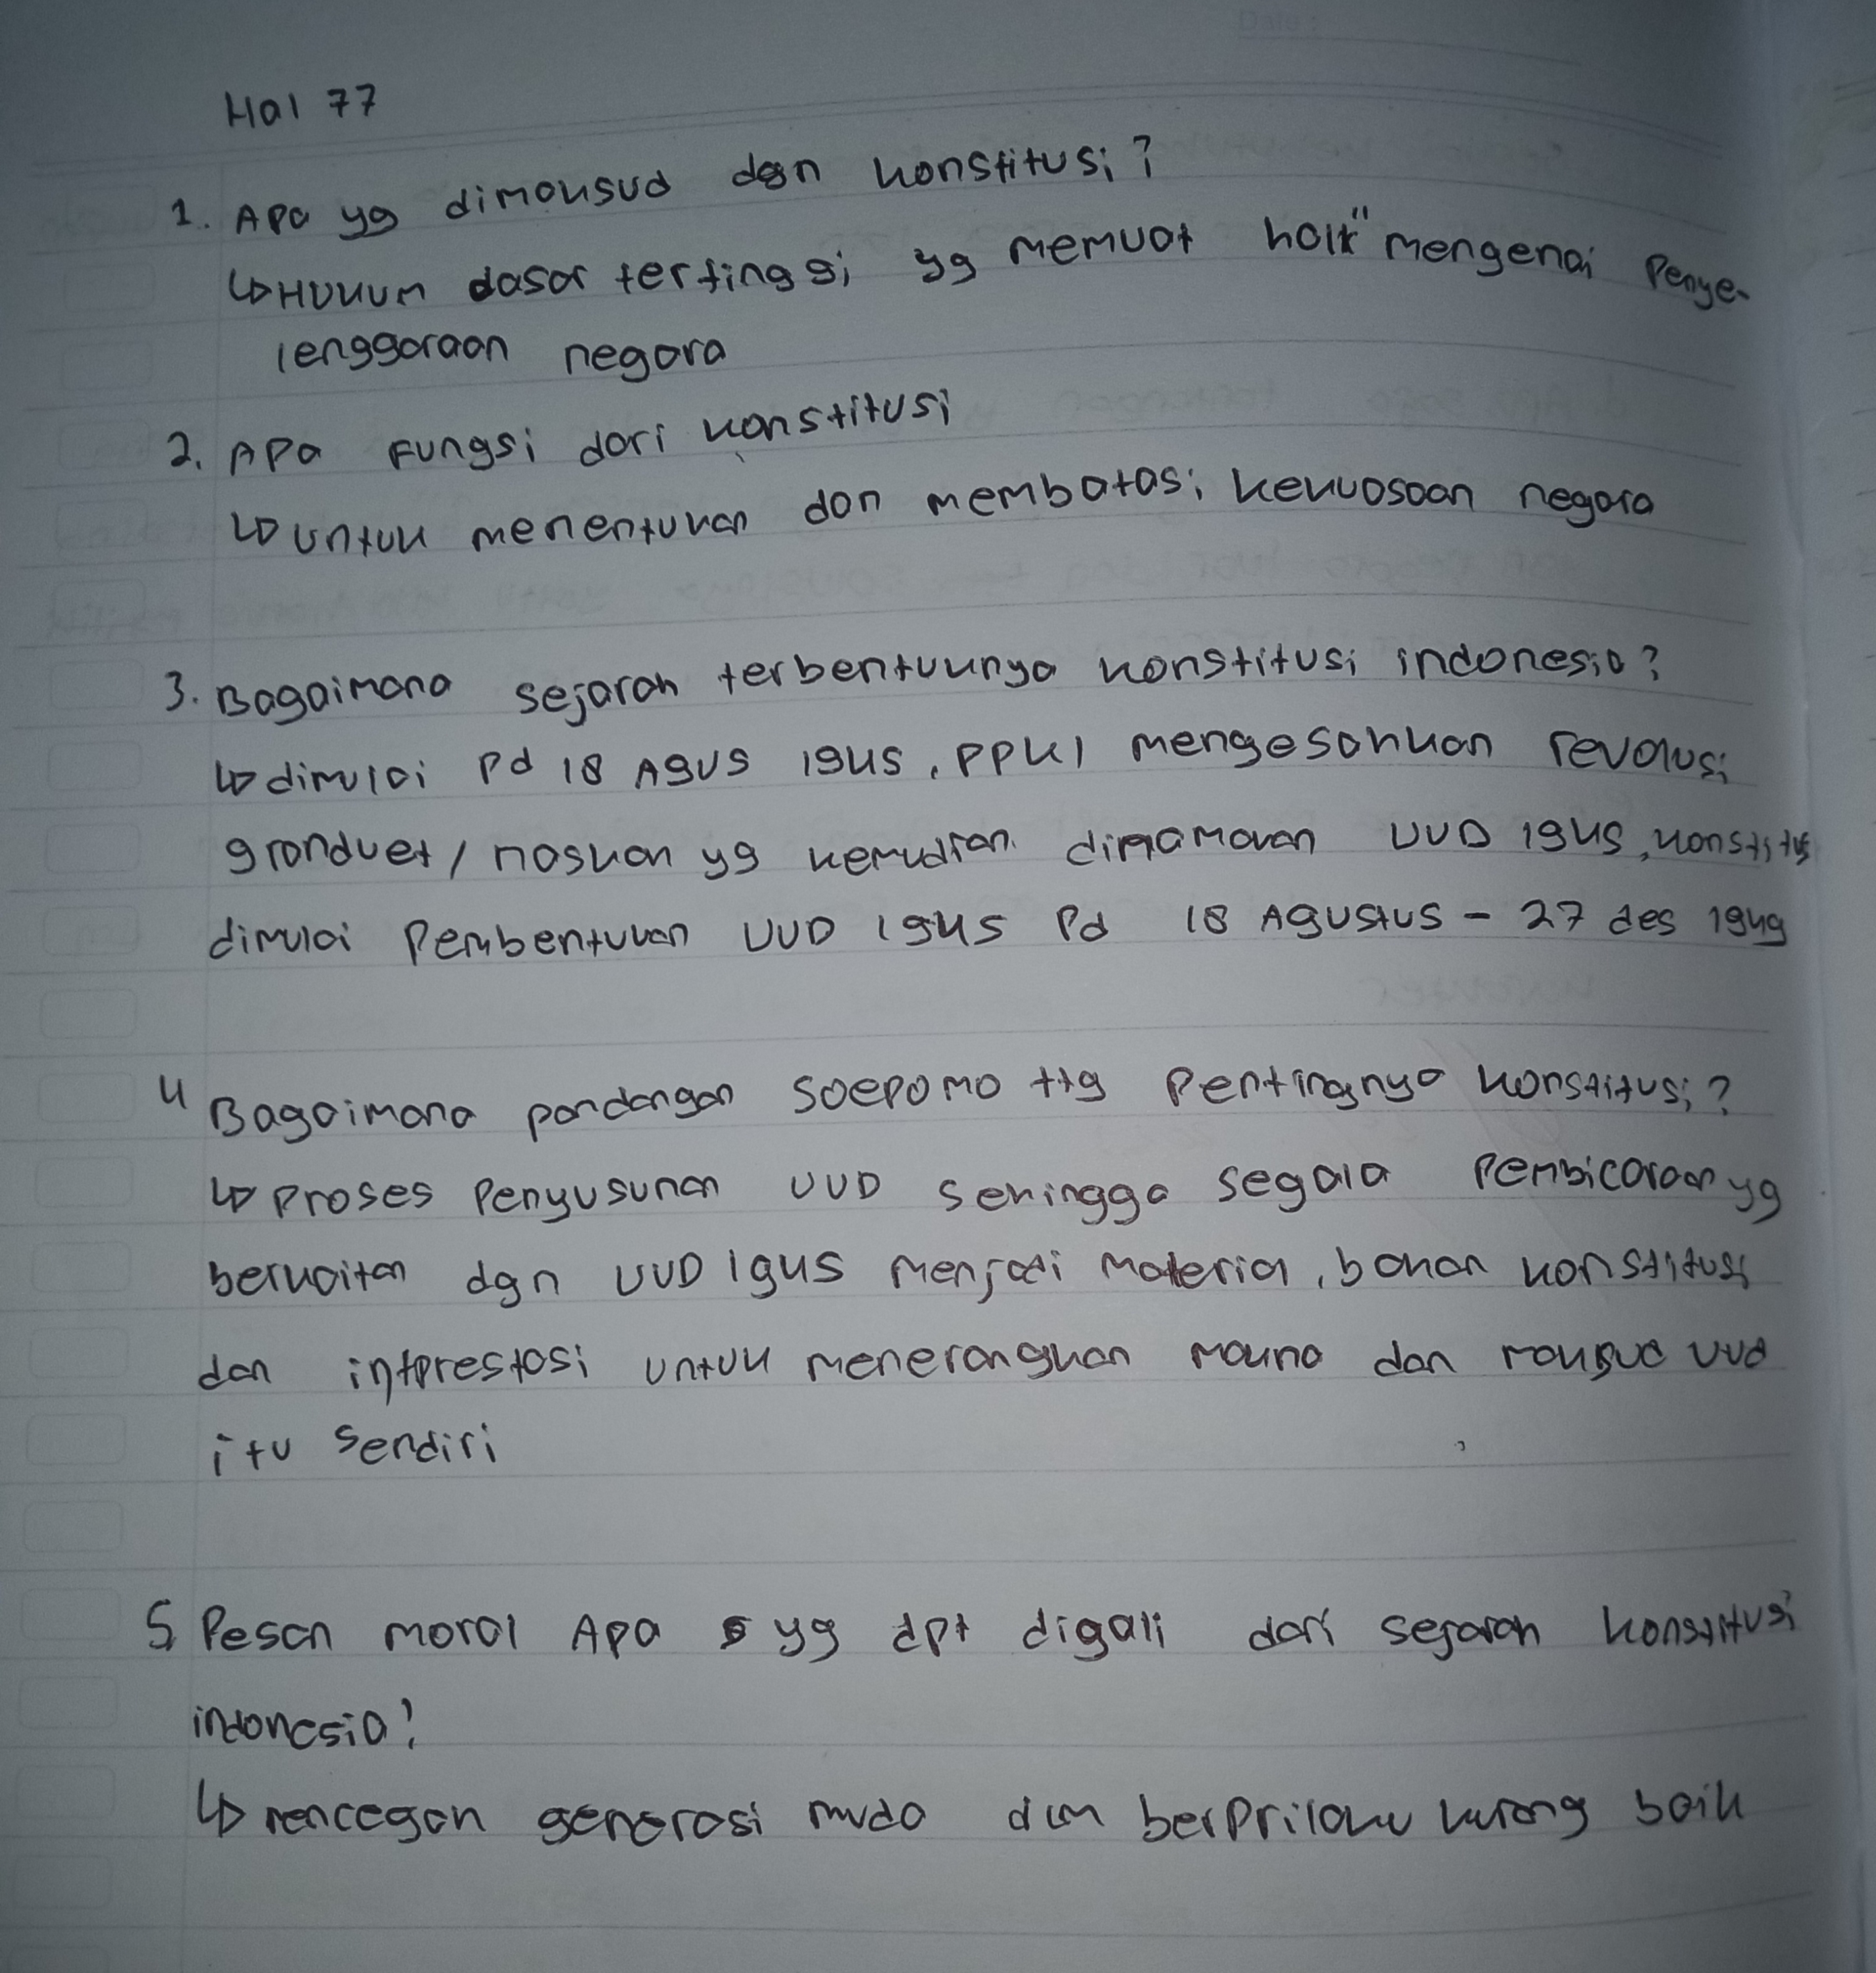 Hal 77
1. Apa yg dimaksud dgn konstitusi?
↳ Hukum dasar tertinggi yg memuat hal" mengenai Penye-
lenggaraan negara
2. Apa Fungsi dari konstitusi
↳ untuk menentukan dan membatasi kekuasaan negara
3. Bagaimana sejarah terbentuknya konstitusi indonesia?
↳ dimulai Pd 18 Agus 1945, PPKI mengesahkan revolusi
grondwet / naskah yg kemudian dinamakan UUD 1945, konstitus
dimulai Pembentukan UUD 1945 Pd 18 Agustus - 27 des 1949
4 Bagaimana pandangan Soepomo ttg Pentingnya konstitusi?
↳ Proses Penyusunan UUD sehingga segala Pembicaraan yg
berkaitan dgn UUD 1945 menjadi material, bahan konstitusi
dan intprestasi untuk menerangkan makna dan maksud UUD
itu sendiri
5 Pesan moral Apa yg dpt digali dari sejarah konstitusi
indonesia?
↳ mencegah generasi muda dlm berprilaku kurang baik